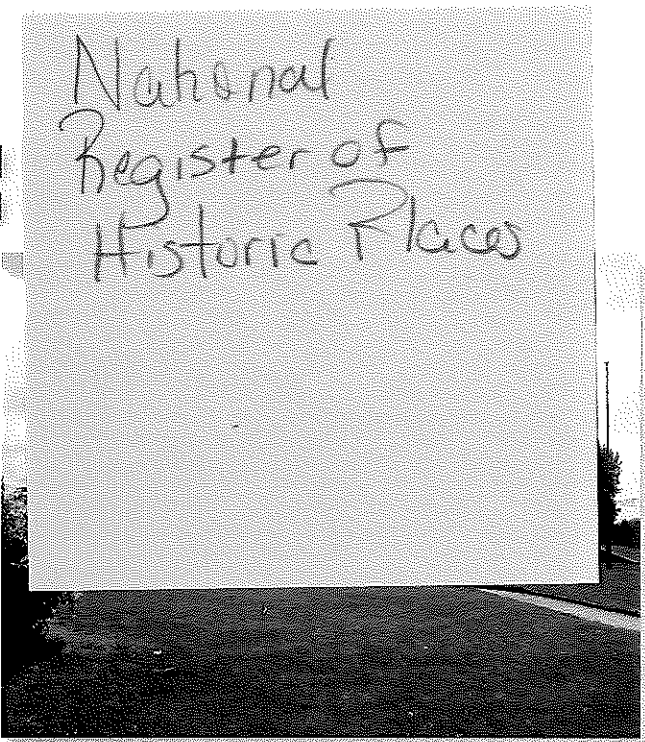 National
Register of
Historic Places